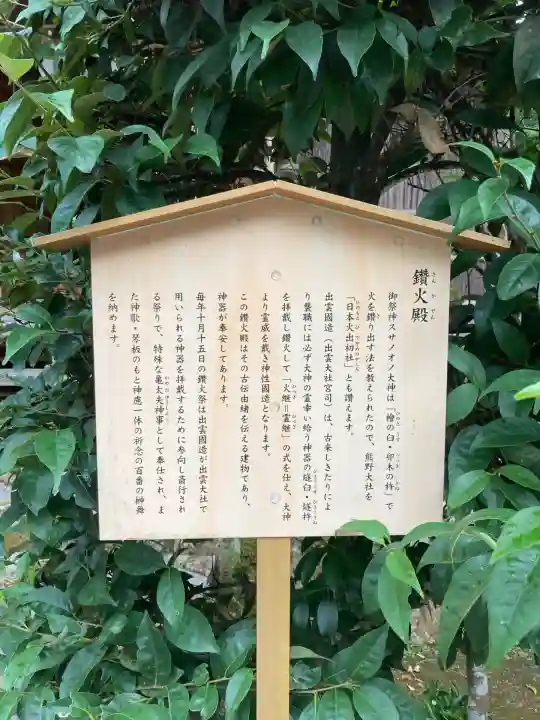 鑽火殿
御祭神スサノオノ大神は「檜の臼・卯木の杵」で
火を鑽り出す法を教えられたので、熊野大社を
「日本火出初社」とも讃えます。
出雲國造(出雲大社宮司)は、古来しきたりによ
り襲職には必ず大神の霊幸い給う神器の燧臼・燧杵
を拝戴し鑽火して「火継＝霊継」の式を仕え、大神
より霊威を戴き神性國造となります。
この鑽火殿はその古伝由緒を伝える建物であり、
神器が奉安してあります。
毎年十月十五日の鑽火祭は出雲國造が出雲大社で
用いられる神器を拝戴するために参向し斎行され
る祭りで、特殊な亀太夫神事として奉仕され、ま
た神歌・琴板のもと神慮一体の祈念の百番の神舞
を納めます。